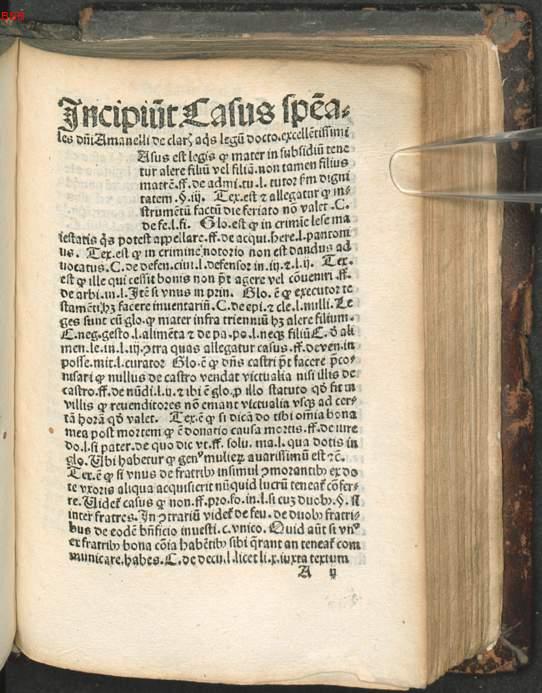 BSB
Incipiūt Casus spēa-
les dn̄i Amanelli de clarꝭ aq̄s legū docto. excellētissimi
Asus est legis ꝙ mater in subsidiū tene
tur alere filiū vel filiā. non tamen filius
matrē. ff. de admi. tu. l. tutor ẜm digni
tatem. §. iij. Tex. est ⁊ allegatur ꝙ in-
strumētū factū die feriato nō valet. C.
de fe. l. fi. Glo. est ꝙ in crimīe lese ma
iestatis q̄s potest appellare. ff. de acqui. here. l. pantom
us. Tex. est ꝙ in crimine notorio non est dandus ad
uocatus. C. de defen. ciui. l. defensor in. iij. ⁊. l. ij. Tex.
est ꝙ ille qui cessit bonis non pt̄ agere vel cōueniri. ff.
de arbi. in. l. Itē si vnus in prin. Glo. ē ꝙ executor te
stamēti hꝫ facere inuentariū. C. de epi. ⁊ cle. l. nulli. Le
ges sunt cū glo. ꝙ mater infra trienniū hꝫ alere filium.
C. neg. gesto. l. alimēta ⁊ de pa. po. l. neqꝫ filiū C. ō ali
men. le. in. l. iij ꝯtra quas allegatur casus. ff. de ven. in
posse. mit. l. curator Glo. ē ꝙ dn̄s castri pt̄ facere p̄co-
nisari ꝙ nullus de castro vendat victualia nisi illis de
castro. ff. de nūdi. l. ij. ⁊ ibi ē glo. ꝓ illo statuto qd̄ fit in
villis ꝙ reuenditores nō emant victualia vsqꝫ ad cer-
tā horā qd̄ valet. Tex. ē ꝙ si dicā do tibi om̄ia bona
mea post mortem ꝙ ē donatio causa mortis. ff. de iure
do. l. si pater. de quo dic vt. ff. solu. ma. l. qua dotis in
glo. Vbi habetur ꝙ genꝰ mulieꝝ auarissimū est ⁊c.
Tex. ē ꝙ si vnus de fratribꝫ insimul ꝯmorantibꝫ ex do
te vxoris aliqua acquisierit nūquid lucrū teneat̄ cōfer-
re. Videt̄ casus ꝙ non. ff. pro. so. in. l. si cuꝫ duobꝫ. §. si
inter fratres. In ꝯtrariū videt̄ de feu. de duobꝫ fratri-
bus de eodē bn̄ficio inuesti. c. vnico. Quid aūt si vnꝰ
ex fratribꝫ bona cōia habētibꝫ sibi q̄rant an teneat̄ com
municare. habes. C. de decu. l. licet li. x. iuxta textum
A ij